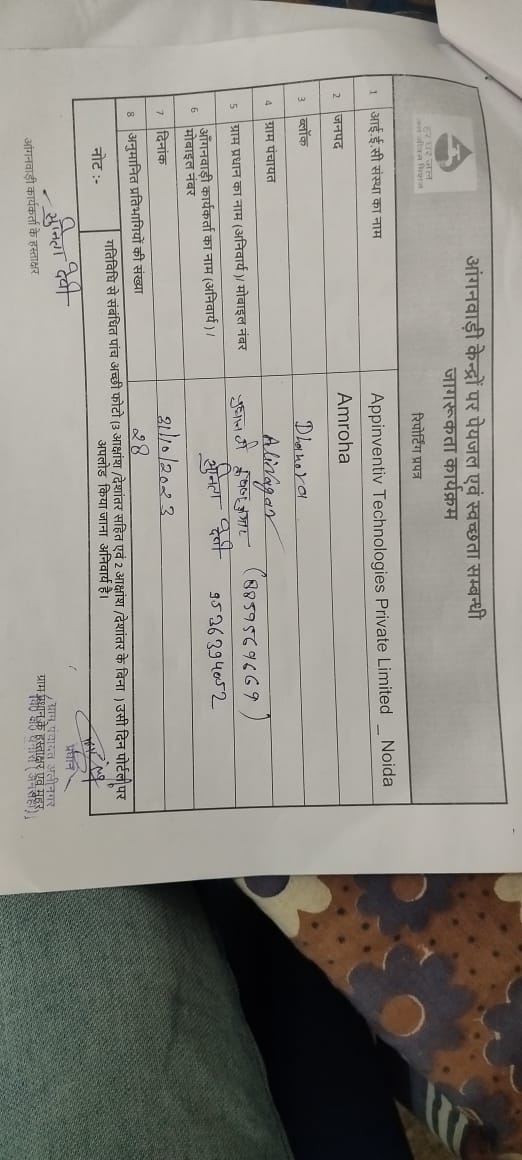 हर घर जल
जल जीवन मिशन
आंगनवाड़ी केन्द्रों पर पेयजल एवं स्वच्छता सम्बन्धी
जागरूकता कार्यक्रम
रिपोर्टिंग प्रपत्र
1 आई.ई.सी संस्था का नाम Appinventiv Technologies Private Limited _ Noida
2 जनपद Amroha
3 ब्लॉक Dhanora
4 ग्राम पंचायत Alinagar
5 ग्राम प्रधान का नाम (अनिवार्य)/ मोबाइल नंबर
(8859569669)
6 आँगनवाड़ी कार्यकर्ता का नाम (अनिवार्य ) /
मोबाइल नंबर
देवी 9526394052
7 दिनांक 31/10/2023
8 अनुमानित प्रतिभागियों की संख्या 28
नोट :- गतिविधि से संबंधित पांच अच्छी फोटो (3 आक्षांश /देशांतर सहित एवं 2 आक्षांश /देशांतर के बिना ) उसी दिन पोर्टल पर
अपलोड किया जाना अनिवार्य है।
देवी
आंगनवाड़ी कार्यकर्ता के हस्ताक्षर
प्रधान
ग्राम पंचायत अलीनगर
ग्राम प्रधान के हस्ताक्षर एवं मुहर